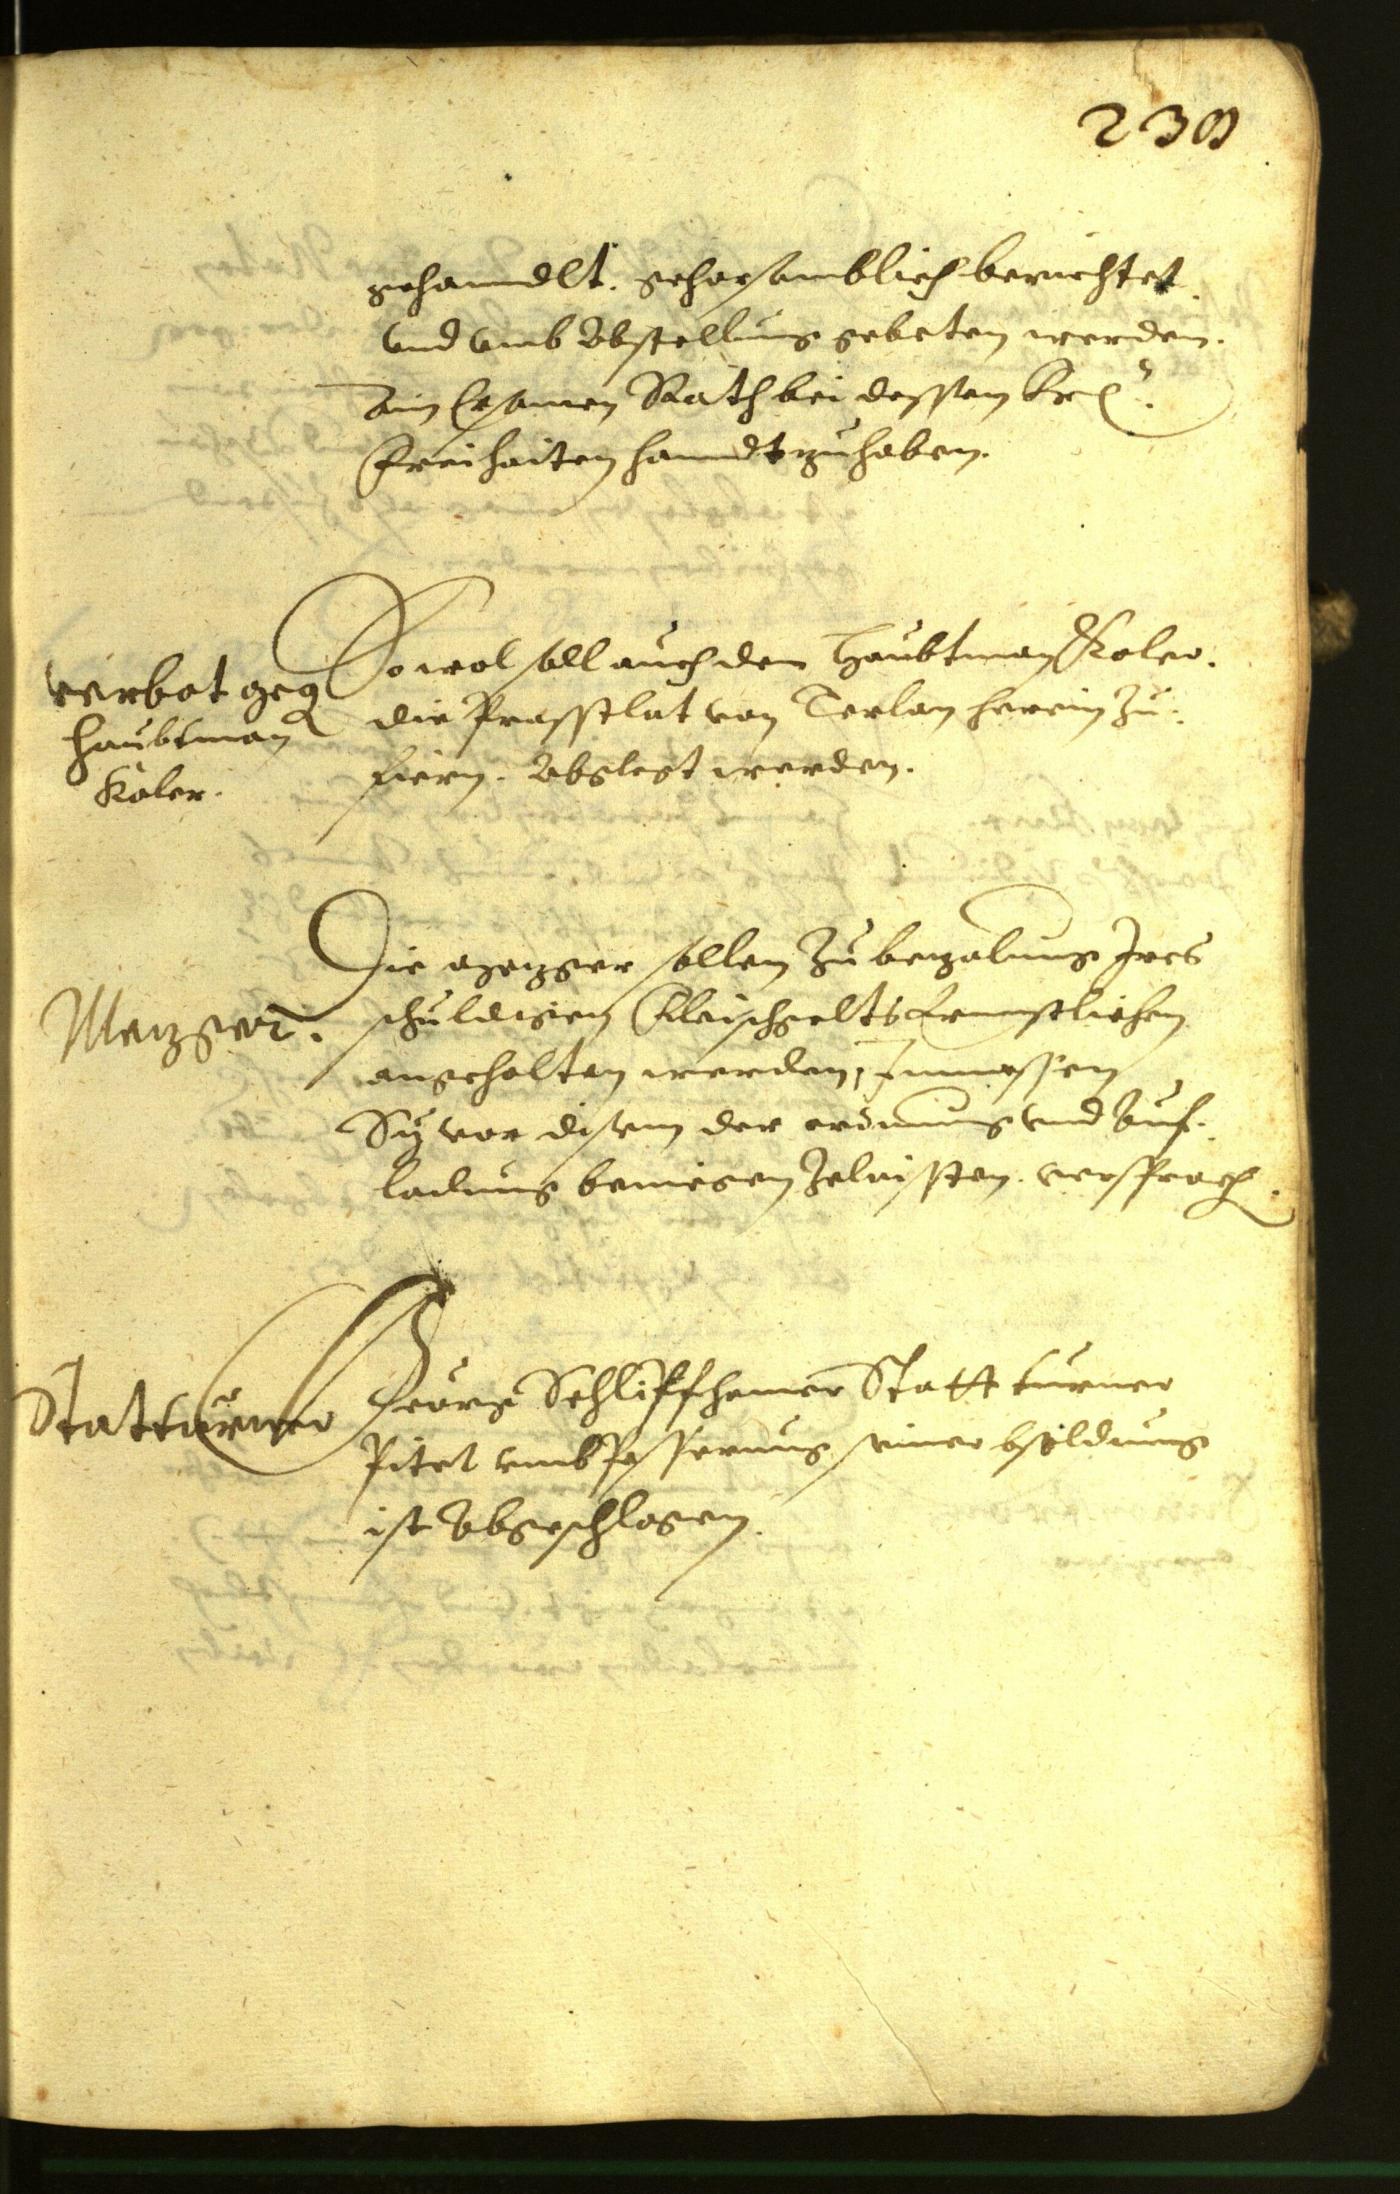 239
gehanndlt. gehorsamblich berichtet
vnd vmb Abstellung gebeten werden.
Ain Ersamen Rath bei dessen
Freihaiten hanndtzuhaben.
verbot geg
Haubtman
Koler.
So wol soll auch dem Haubtman Koler.
die Praschlat von Terlan herein zu
fiern. Abglegt werden.
Mezger.
Die mezger sollen zu bezalung Ires
schuldigen Fleischgelts Ernnstlichen
angehalten werden, Innmassen
Sy vor disem der ordnung vnd Auf-
ladung benüegen zelaisten. versprochen.
Statturner
Georg Schlipfhamer Statt turner
Pitet vmb Pesserung seiner bsoldung
ist Abgeschlagen.